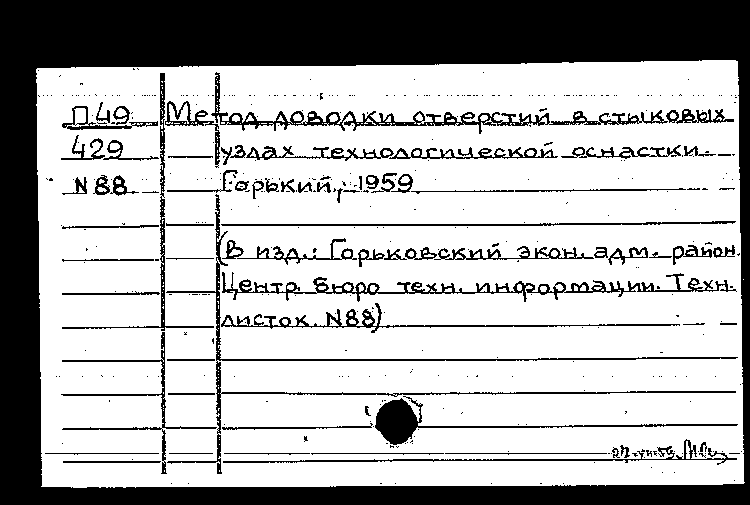 П49 Метод доводки отверстий в стыковых
429 узлах технологической оснастки.
N88 Горький, 1959
(В изд.: Горьковский экон. адм. район.
Центр. бюро техн. информации. Техн.
листок. N88)